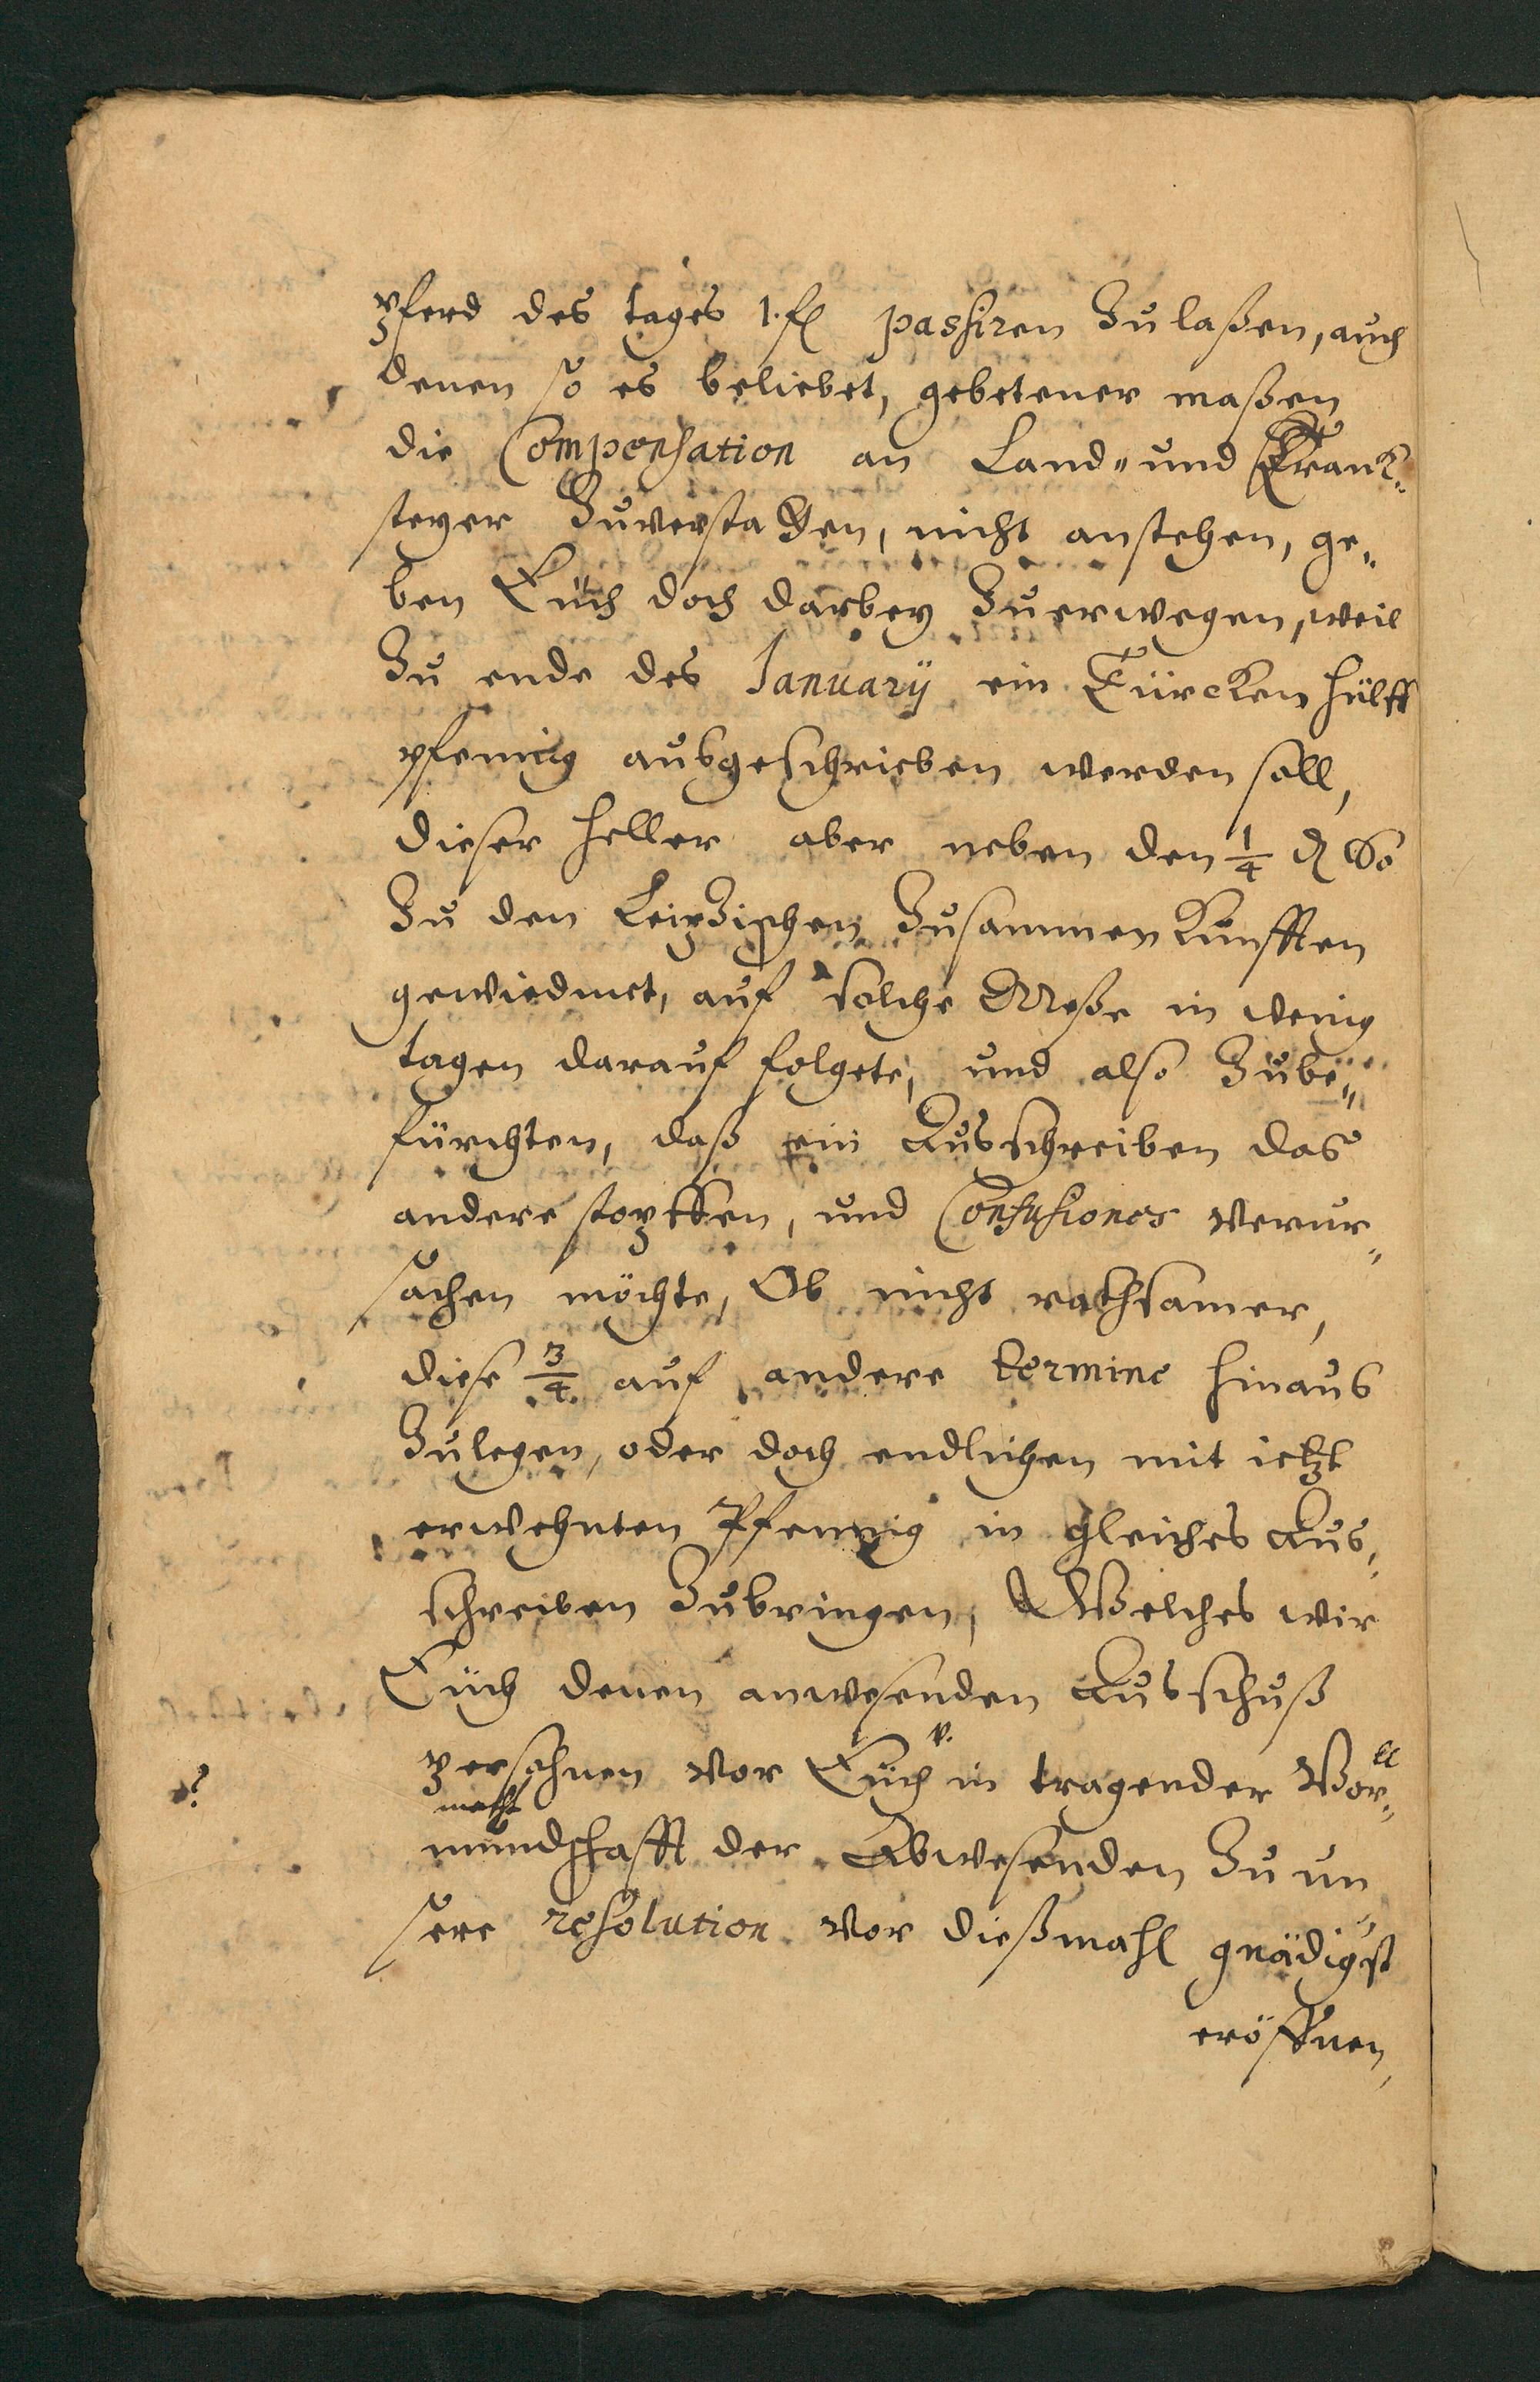 pferd des tages 1. fl passiren Zulaßen, auch
denen so es beliebet, gebetener maßen
die Compensation an Land- und Tranck-
steyer Zuverstatten, nicht anstehen, ge-
ben Euch doch darbey Zuerwegen, weil
Zu ende des January ein Türcken hülff
pfennig ausgeschrieben werden soll,
dieser heller aber neben den 1/4 ₰ so
Zu den Leipzischen Zusammen Künfften
gewiedmet, auf solche Meße in wenig
tagen darauf folgete, und also Zube-
fürchten, daß ein Ausschreiben das
andere stopffen, und Confusiones verur-
sachen möchte, Ob nicht rathsamer,
diese 3/4 auf andere termine hinaus
Zulegen, oder doch endlichen mit ietzt
erwehnten Pfennig in gleiches Aus-
schreiben Zubringen, Welches wir
Euch denen anwesenden Ausschuß
persohnen vor Euch v. in tragender Vor- ll
macht
mundschafft der Abwesenden Zu un-
sere resolution vor dießmahl gnädigst
eröffnen,